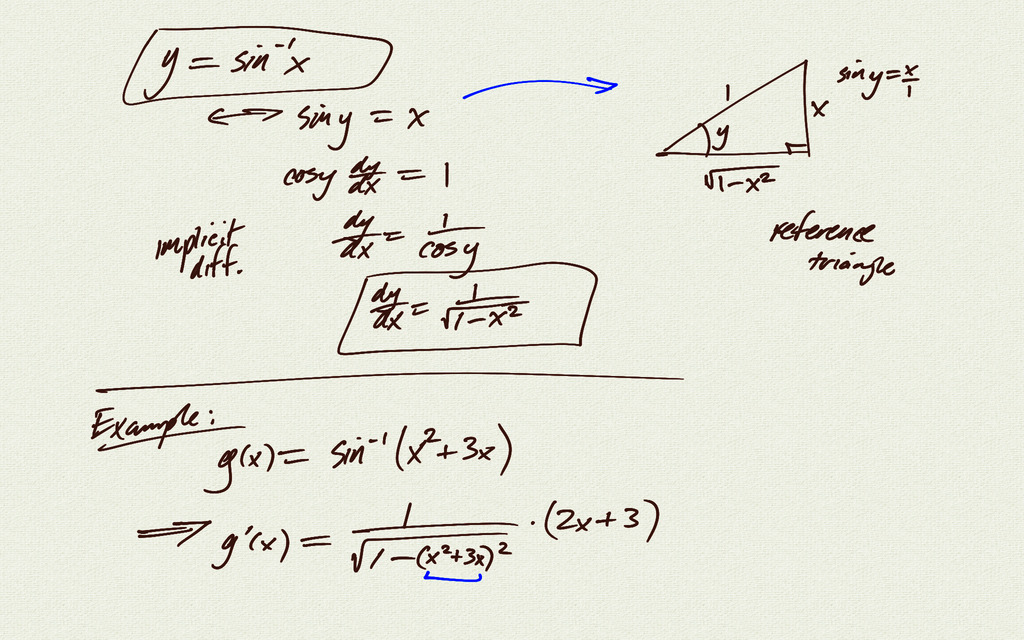 y = sin⁻¹x
↔ sin y = x
cos y dy/dx = 1
implicit diff.
dy/dx = 1/cos y
dy/dx = 1/√(1-x²)
1
x
y
√(1-x²)
sin y = x/1
reference
triangle
Example:
g(x) = sin⁻¹(x²+3x)
⇒ g'(x) = 1/√(1-(x²+3x)²) · (2x+3)